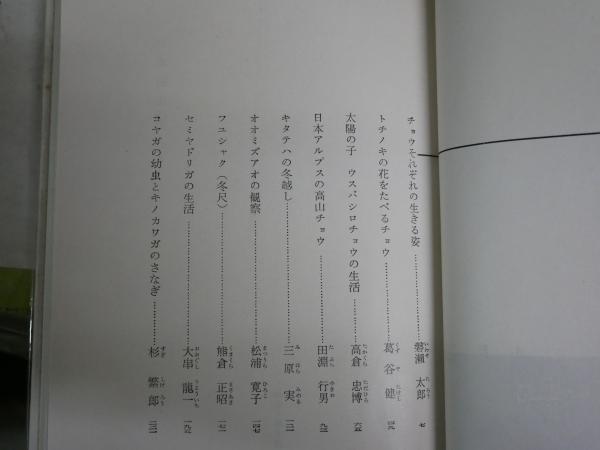 チョウそれぞれの生きる姿……………磐瀬太郎 七
トチノキの花をたべるチョウ……………葛谷健
太陽の子 ウスバシロチョウの生活……………高倉忠博 六五
日本アルプスの高山チョウ……………田淵行男 九三
キタテハの冬越し……………三原実
オオミズアオの観察……………松浦寛子 一四七
フユシャク(冬尺)……………熊倉正昭 一七一
セミヤドリガの生活……………大串龍一 一九五
コヤガの幼虫とキノカワガのさなぎ……………杉繁郎 二二一